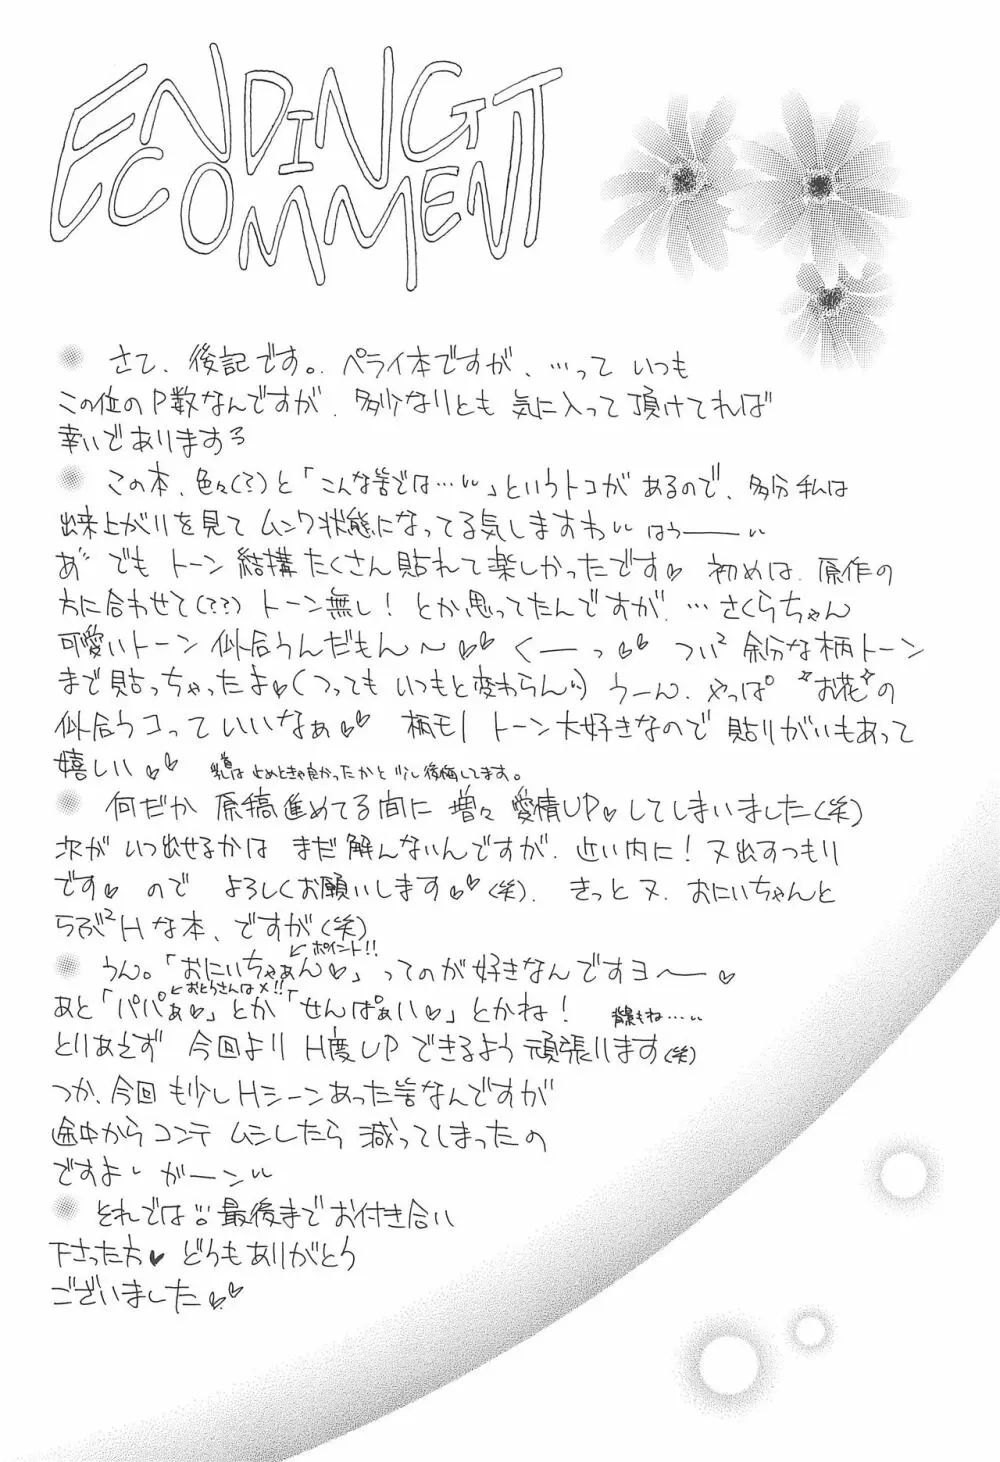 ENDING
COMMENT
さて、後記です。ペライ本ですが、…って いつも
この位のP数なんですが、多少なりとも 気に入って頂けてれば
幸いでありまする
この本、色々(?)と「こんな筈では…」というトコがあるので、多分私は
出来上がりを見て ムンク状態になってる気しますわ はうーー
あ゛でもトーン結構たくさん貼れて楽しかったです♥ 初めは、原作の
方に合わせて(??)トーン無し！とか思ってたんですが、…さくらちゃん
可愛いトーン似合うんだもん～♥♥ くーーっ♥♥ つい²余分な柄トーン
まで貼っちゃったよ♥(つっても いつもと変わらん)うーん、やっぱ お花の
似合うコって いいなぁ♥♥ 柄モノトーン大好きなので 貼りがいもあって
嬉しい♥♥ はやめときゃ良かったかと少し後悔してます。
何だか 原稿進めてる間に 増々 愛情UP♥してしまいました(笑)
次が いつ出せるかは まだ解んないんですが、近い内に！又出すつもり
です♥ ので よろしくお願いします♥♥(笑)、きっと又、おにいちゃんと
らぶ²Hな本、ですが(笑)
ポイント!!
うん。「おにいちゃぁん♥」ってのが好きなんですヨ～♥
おとうさんはメ!!
あと「パパぁ♥」とか「せんぱぁい♥」とかね！ 背景もね…
とりあえず 今回より H度UPできるよう頑張ります(笑)
つか、今回も少しHシーンあった筈なんですが
途中からコンテ ムシしたら減ってしまったの
ですよ がーン
それでは 最後までお付き合い
下さった方♥ どうもありがとう
ございました♥♥